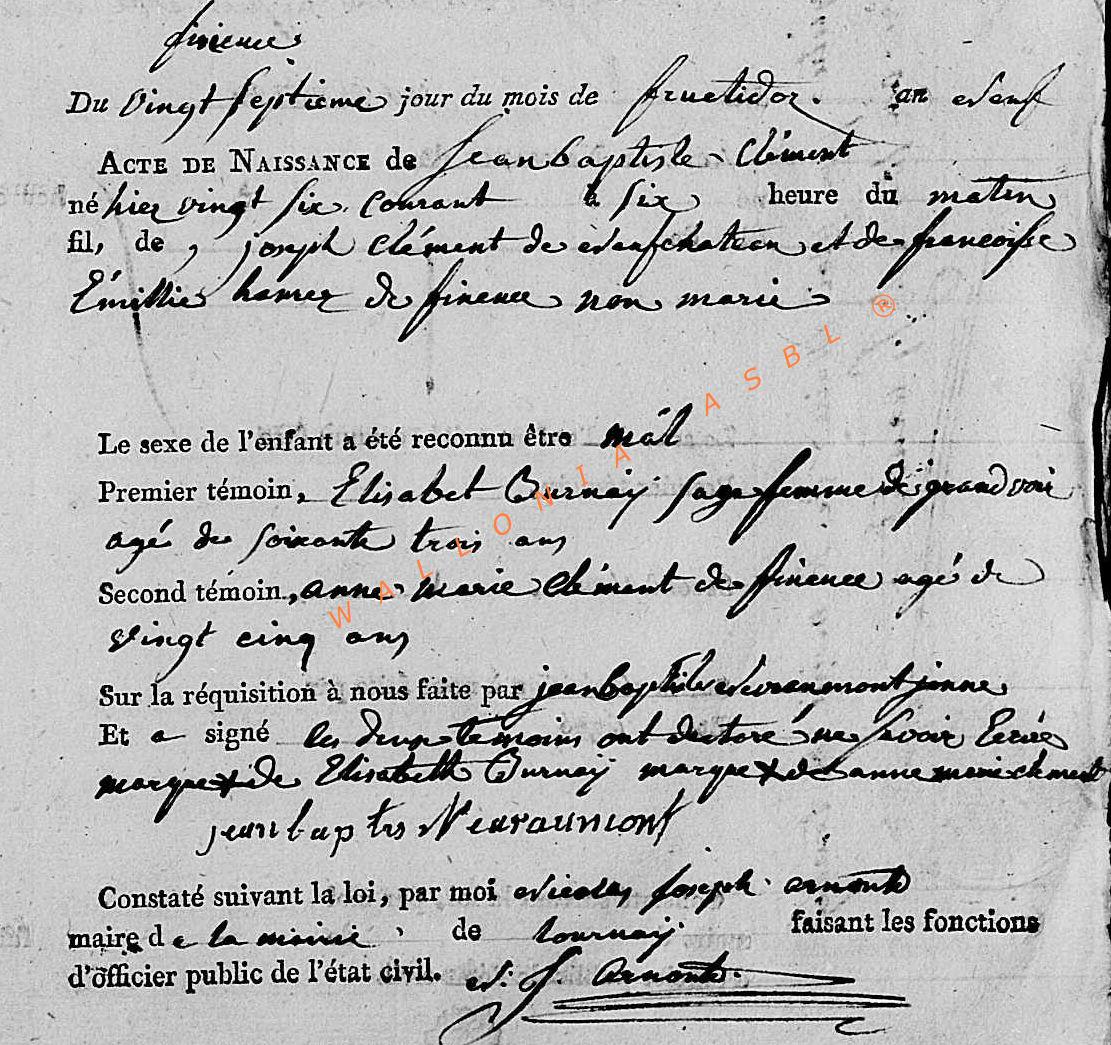 finence
Du vingt septieme jour du mois de fructidor. an neuf
ACTE DE NAISSANCE de jean baptiste Clément
né hier vingt six courant à six heure du matin
fil, de, joseph Clément de neufchateau et de francoisse
Émillie hamez de finence non marié
Le sexe de l'enfant a été reconnu être mâl
Premier témoin, Elisabet Burnay sage femme de grandvoir
agé de soixante trois ans
Second témoin, anne marie Clément de finence agé de
vingt cinq ans
Sur la réquisition à nous faite par jean baptiste Neuraumont
Et a signé les deux temoins ont declaré ne savoir Ecrire
marque de Elisabett Burnay marque de anne marie clement
jean baptis Neuraumont
Constaté suivant la loi, par moi Nicolas joseph arnould
maire de la mairie de tournay faisant les fonctions
d'officier public de l'état civil. N: J. Arnould.
WALLONIA ASBL ®